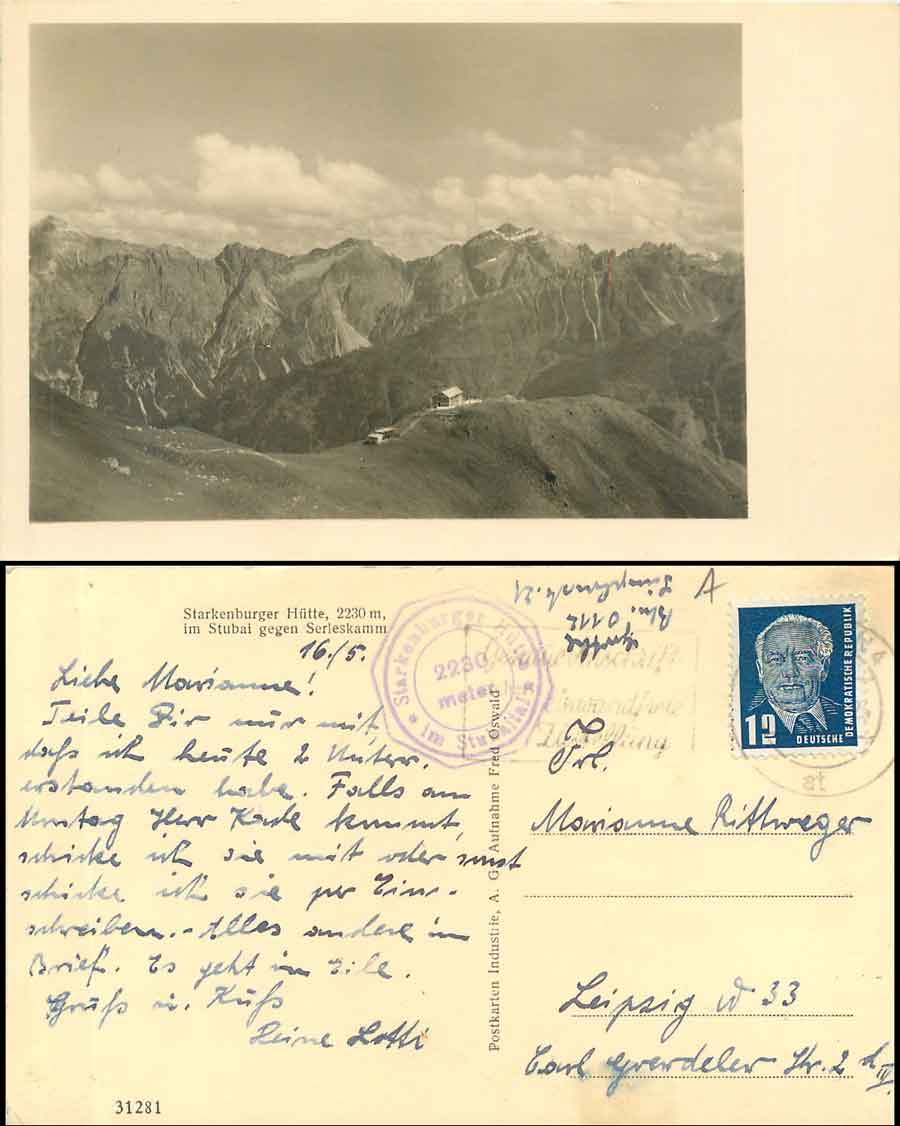 Starkenburger Hütte, 2230 m,
im Stubai gegen Serleskamm
16./5.
Liebe Marianne!
Teile Dir nur mit,
daß ich heute 2 Unterr.
erstanden habe. Falls am
Montag Herr kommt,
schicke ich sie mit oder sonst
schicke ich sie per Ein-
schreiben. - Alles andere im
Brief. Es geht in Eile.
Gruß u. Kuß
Deine Lotti
31281
Starkenburger Hütte
2230
meter
* im Stubaital *
Postkarten Industrie, A. G. Aufnahme Fred Oswald
A
Bln. O 112
12
DEUTSCHE
DEMOKRATISCHE REPUBLIK
Zustellung
at
Frl.
Marianne Rittweger
Leipzig W 33
Carl Goerdeler Str. 2 d
IV.